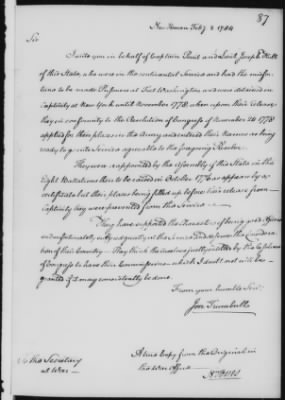 87
New Haven Feby 2 1784
Sir
I write you in behalf of Captain Paul and Lieut Joseph Hill
of this State, who were in the continental Service and had the misfor-
tune to be made Prisoners at Fort Washington and were detained in
Captivity at New York until November 1778, when upon their release
they in conformity to the Resolution of Congress of November 24 1778
applied for their places in the Army and entered their Names as being
ready to go into Service agreeable to the foregoing Resolve.
They were appointed by the Assembly of this State in the
Eight Battalions then to be raised in October 1776 as appears by a
certificate but their places being filled up before their release from
Captivity they were prevented from the Service
They have supported the Character of being good Officers
unfortunately
of their Country They think themselves justly entitled by the Resolutions
of Congress to have their Commissions which I doubt not will be
granted if it may consistently be done.
From your humble Serv.
Jon Trumbull
To the Secretary
at War
A true Copy from the Original in
the War Office